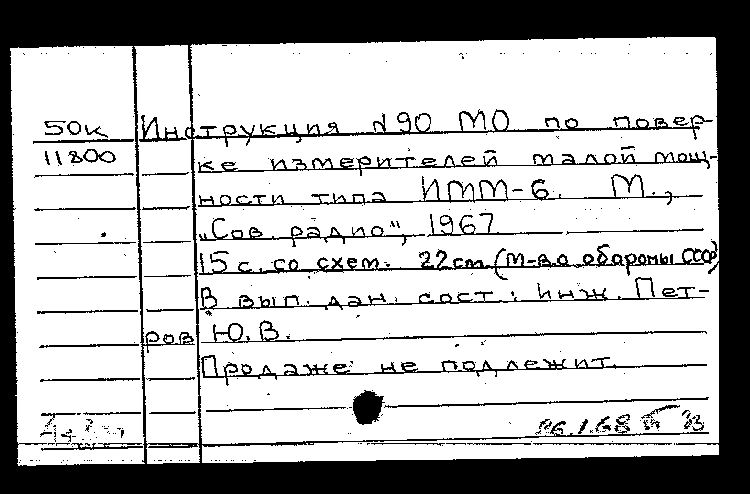 50к Инструкция №90 МО по повер-
11800 ке измерителей малой мощ-
ности типа ИММ-6. М.,
„Сов. радио", 1967
15 с. со схем. 22 cm. (М-во обороны СССР)
В вып. дан. сост.: инж. Пет-
ров Ю.В.
Продаже не подлежит.
26.1.68